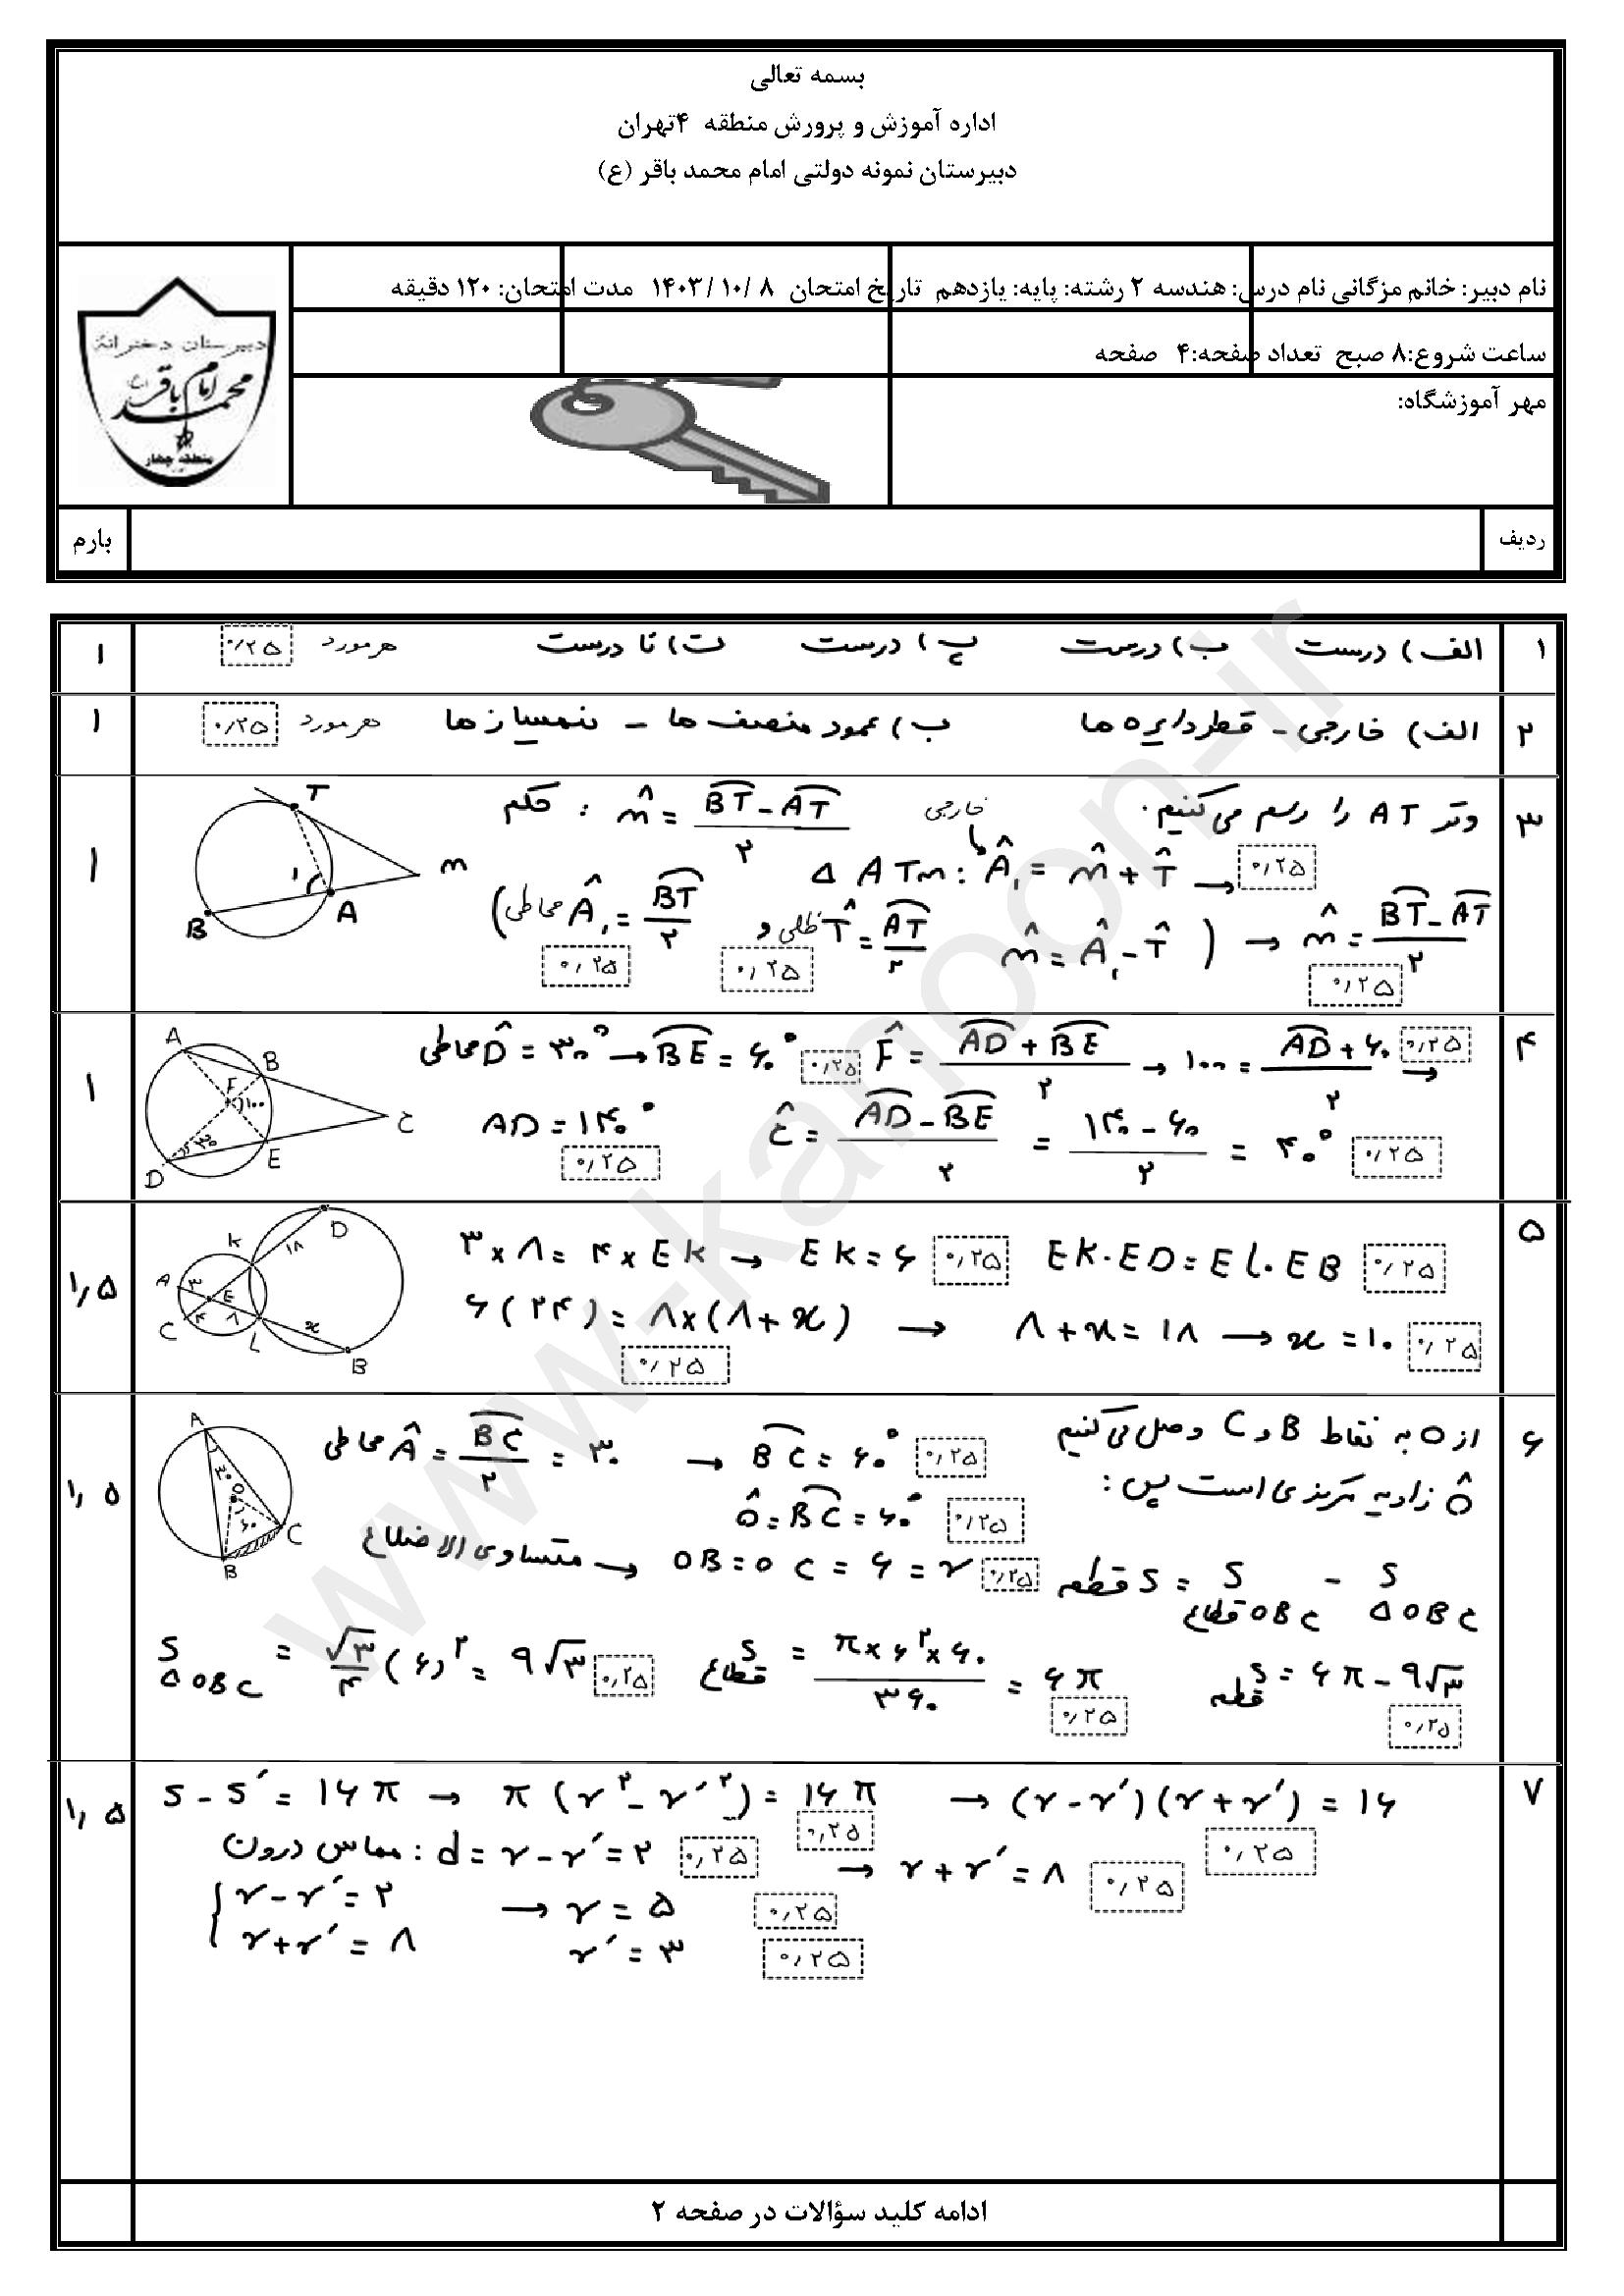 بسمه تعالی
اداره آموزش و پرورش منطقه ۴تهران
دبیرستان نمونه دولتی امام محمد باقر (ع)
نام دبیر: خانم مزگانی نام درس: هندسه ۲ رشته: پایه: یازدهم تاریخ امتحان ۸ /۱۰ /۱۴۰۳ مدت امتحان: ۱۲۰ دقیقه
ساعت شروع:۸ صبح تعداد صفحه:۴ صفحه
مهر آموزشگاه:
دبیرستان دخترانه
امام محمد باقر
منطقه چهار
ردیف بارم
۱ الف) درست ب) درست پ) درست ت) نا درست هرمورد ۰/۲۵ ۱
۲ الف) خارجی - قطر دایره ها ب) عمود منصف ها - نیمساز ها هرمورد ۰/۲۵ ۱
۳ وتر AT را رسم می کنیم. حکم : m̂ = (BT - AT)/۲ ۱
خارجی Δ ATm : Â₁ = m̂ + T̂ → ۰/۲۵
(محاطی Â₁ = BT/۲ ۰/۲۵ و ظلی T̂ = AT/۲ ۰/۲۵ m̂ = Â₁ - T̂ ) → m̂ = (BT - AT)/۲ ۰/۲۵
T m A B ۱
۴ محاطی D̂ = ۳۰° → BE = ۶۰° ۰/۲۵ F̂ = (AD + BE)/۲ → ۱۰۰ = (AD + ۶۰)/۲ ۰/۲۵ → ۱
AD = ۱۴۰° ۰/۲۵ Ĉ = (AD - BE)/۲ = (۱۴۰ - ۶۰)/۲ = ۴۰° ۰/۲۵
A B F ۱۰۰ C ۳۰ D E
۵ ۳ × ۸ = ۴ × EK → EK = ۶ ۰/۲۵ EK . ED = EL . EB ۰/۲۵ ۱/۵
۶ (۲۴) = ۸ × (۸ + x) ۰/۲۵ → ۸ + x = ۱۸ → x = ۱۰ ۰/۲۵
D K ۱۸ A ۳ E ۴ ۸ C L x B
۶ از O به نقاط B و C وصل می کنیم ۱/۵
محاطی Â = BC/۲ = ۳۰ → BC = ۶۰° ۰/۲۵
Ô زاویه مرکزی است پس : Ô = BC = ۶۰° ۰/۲۵
متساوی الاضلاع → OB = OC = ۶ = r ۰/۲۵ S قطعه = S قطاع OBC - S Δ OBC
S Δ OBC = √۳/۴ (۶)² = ۹√۳ ۰/۲۵ S قطاع = (π × ۶² × ۶۰)/۳۶۰ = ۶π ۰/۲۵ S قطعه = ۶π - ۹√۳ ۰/۲۵
A ۳۰ O ۶۰ C B
۷ S - S′ = ۱۶π → π (r² - r′²) = ۱۶π ۰/۲۵ → (r - r′)(r + r′) = ۱۶ ۰/۲۵ ۱/۵
مماس درون : d = r - r′ = ۲ ۰/۲۵ → r + r′ = ۸ ۰/۲۵
r - r′ = ۲ → r = ۵ ۰/۲۵
r + r′ = ۸ r′ = ۳ ۰/۲۵
ادامه کلید سؤالات در صفحه ۲
www-kanoon-ir